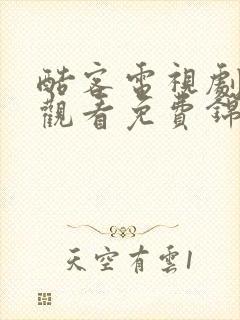 酷客電視劇
觀看免費錦
天空有雲1